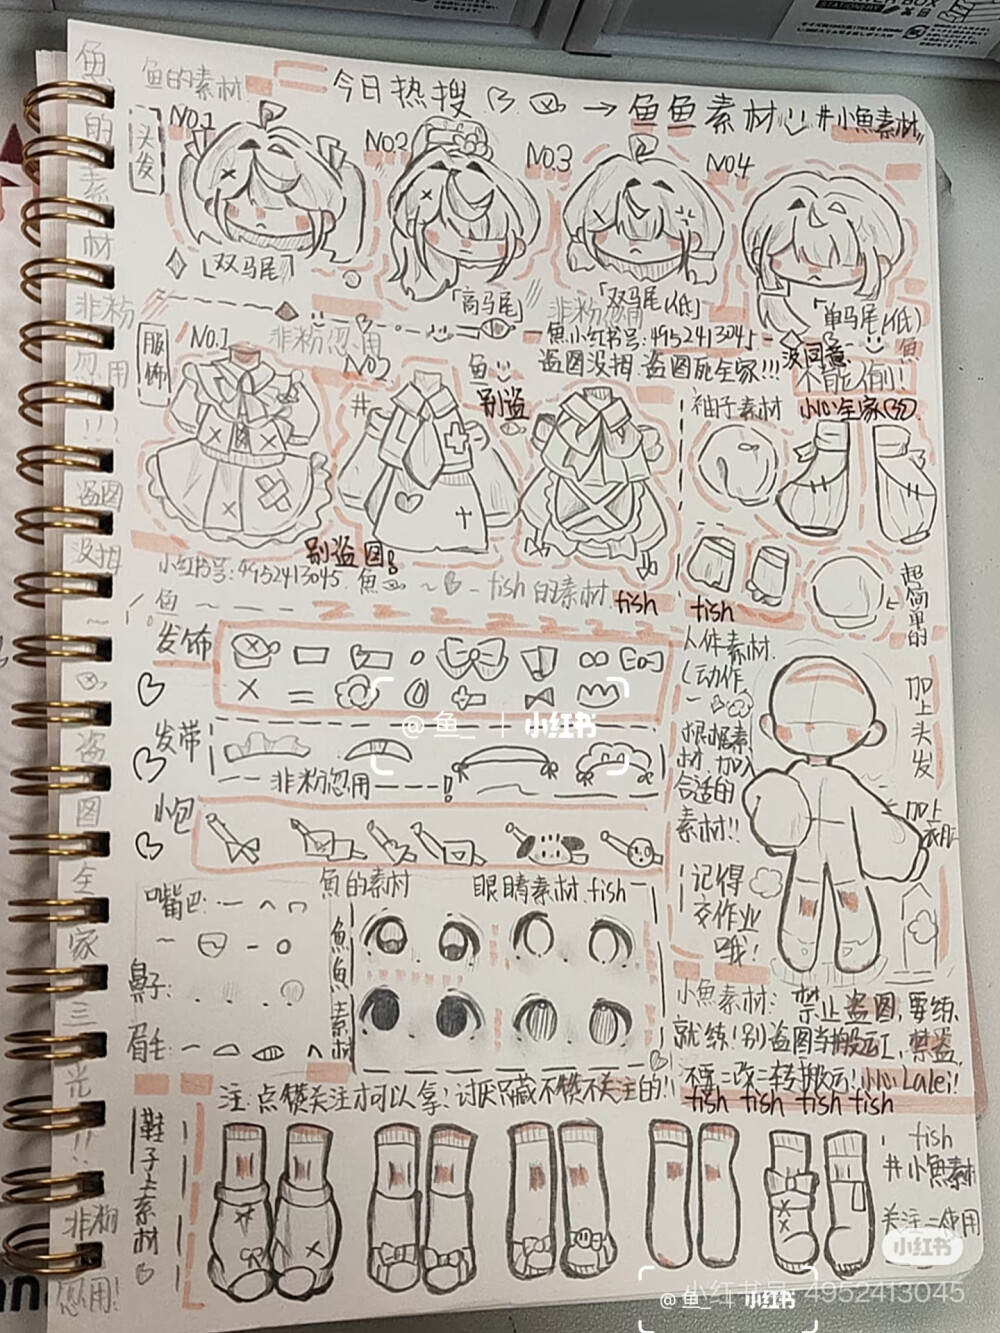 鱼的素材
今日热搜 → 鱼鱼素材!! #小魚素材
头发
NO.1
NO.2
NO.3
NO.4
「双马尾」
「高马尾」
「双马尾(低)」
「单马尾(低)
非粉忽用
非粉忽用
魚小红书号:4952413045
盗图没拇 盗图死全家!!!
没同意
不能佣!
鱼
服饰
NO.1
NO2
#
鱼
别盗
袖子素材
小心全家
别盗图
小红书号:4952413045. 鱼
fish的素材
fish
fish
超简单的
鱼
发饰
发带
非粉忽用
小包
人体素材
(动作
根据素
材加入
合适的
素材!!
加上头发
加上衣服
记得
交作业
哦!
嘴巴:
鼻子:
眉毛:
鱼的素材
眼睛素材.fish
魚魚素材
小魚素材: 禁止盗图,要练
就练!别盗图当搬运工,禁盗,
不要二改二转搬运!小心Lalei!
fish fish fish fish
注:点赞关注才可以拿!讨厌只藏不赞不关注的!!
鞋子上素材
fish
#小魚素材
关注=使用
鱼的素材
非粉
忽用
!!!
盗图
没拇
~
盗图全家三光!!
非粉
忽用!
@鱼_ | 小红书
小红书
小红书号: 4952413045
@鱼_ | 小红书
STATIONERY